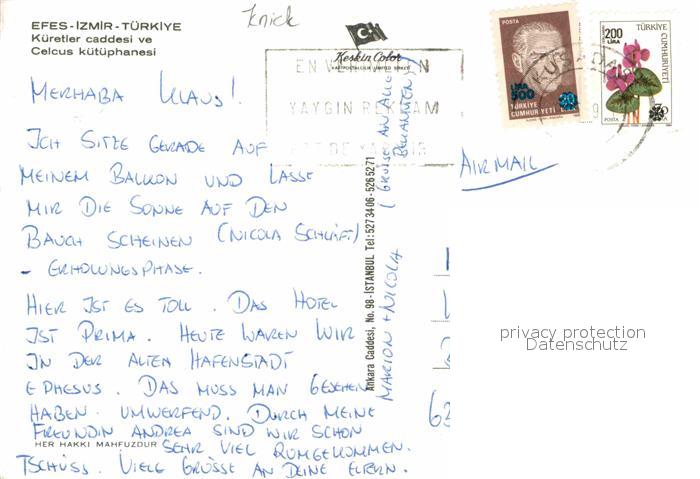 Knick
EFES-İZMİR-TÜRKİYE
Küretler caddesi ve
Celcus kütüphanesi
Keskin Color
KARTPOSTALCILIK LIMITED ŞİRKETİ
EN
YAYGIN REKLAM
POSTA
LİRA
500
20
TÜRKİYE
CUMHURİYETİ
KUŞADASI
200
LİRA
TÜRKİYE
CUMHURİYETİ
POSTA
MERHABA KLAUS!
ICH SITZE GERADE AUF
MEINEM BALKON UND LASSE
MIR DIE SONNE AUF DEN
BAUCH SCHEINEN (NICOLA SCHLÄFT)
- ERHOLUNGSPHASE.
HIER IST ES TOLL. DAS HOTEL
IST PRIMA. HEUTE WAREN WIR
IN DER ALTEN HAFENSTADT
EPHESUS. DAS MUSS MAN GESEHEN
HABEN. UMWERFEND. DURCH MEINE
FREUNDIN ANDREA SIND WIR SCHON
HER HAKKI MAHFUZDUR
SEHR VIEL RUMGEKOMMEN.
TSCHÜSS. VIELE GRÜSSE AN DEINE ELTERN.
MARION + NICOLA
(GRÜSSE AN ALLE
BEKANNTEN)
Ankara Caddesi, No. 98-İSTANBUL Tel: 527 34 06 - 526 52 71
AIRMAIL
63
privacy protection
Datenschutz